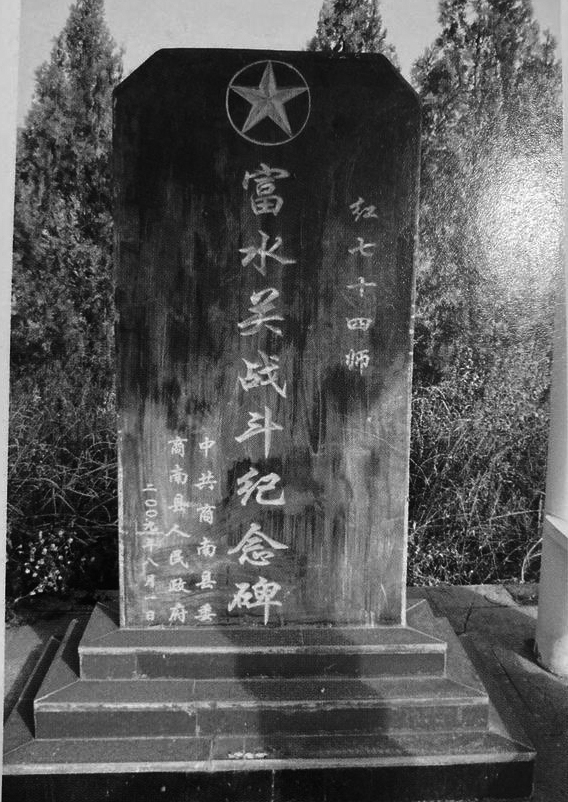 红七十四师
富水关战斗纪念碑
中共商南县委
商南县人民政府
二〇〇九年八月一日